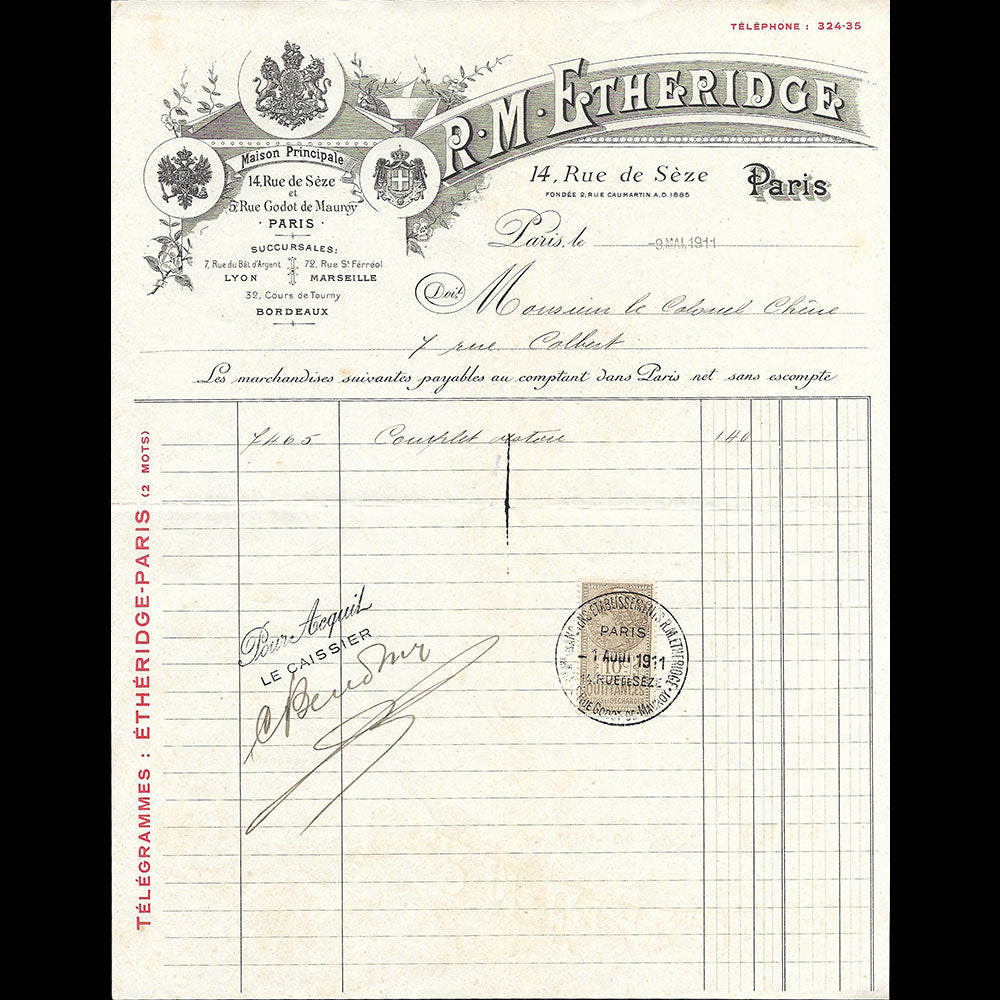 TÉLÉPHONE : 324-35
R·M·ETHERIDGE
14, Rue de Sèze
Paris
FONDÉE 2, RUE CAUMARTIN A.D. 1885
Maison Principale
14, Rue de Sèze
et
5, Rue Godot de Mauroy
· PARIS ·
SUCCURSALES:
7, Rue du Bât d'Argent
LYON
72, Rue St Férréol
MARSEILLE
32, Cours de Tourny
BORDEAUX
Paris, le -9 MAI 1911
Doit Monsieur le Colonel Chêne
7 rue Colbert
Les marchandises suivantes payables au comptant dans Paris net sans escompte
7465 Complet 140
TÉLÉGRAMMES : ÉTHÉRIDGE-PARIS (2 MOTS)
Pour Acquit
LE CAISSIER
ETABLISSEMENTS R.M. ETHERIDGE
PARIS
-1 AOUT 1911
14, RUE DE SÈZE
RUE GODOT-DE-MAUROY
10
QUITTANCES